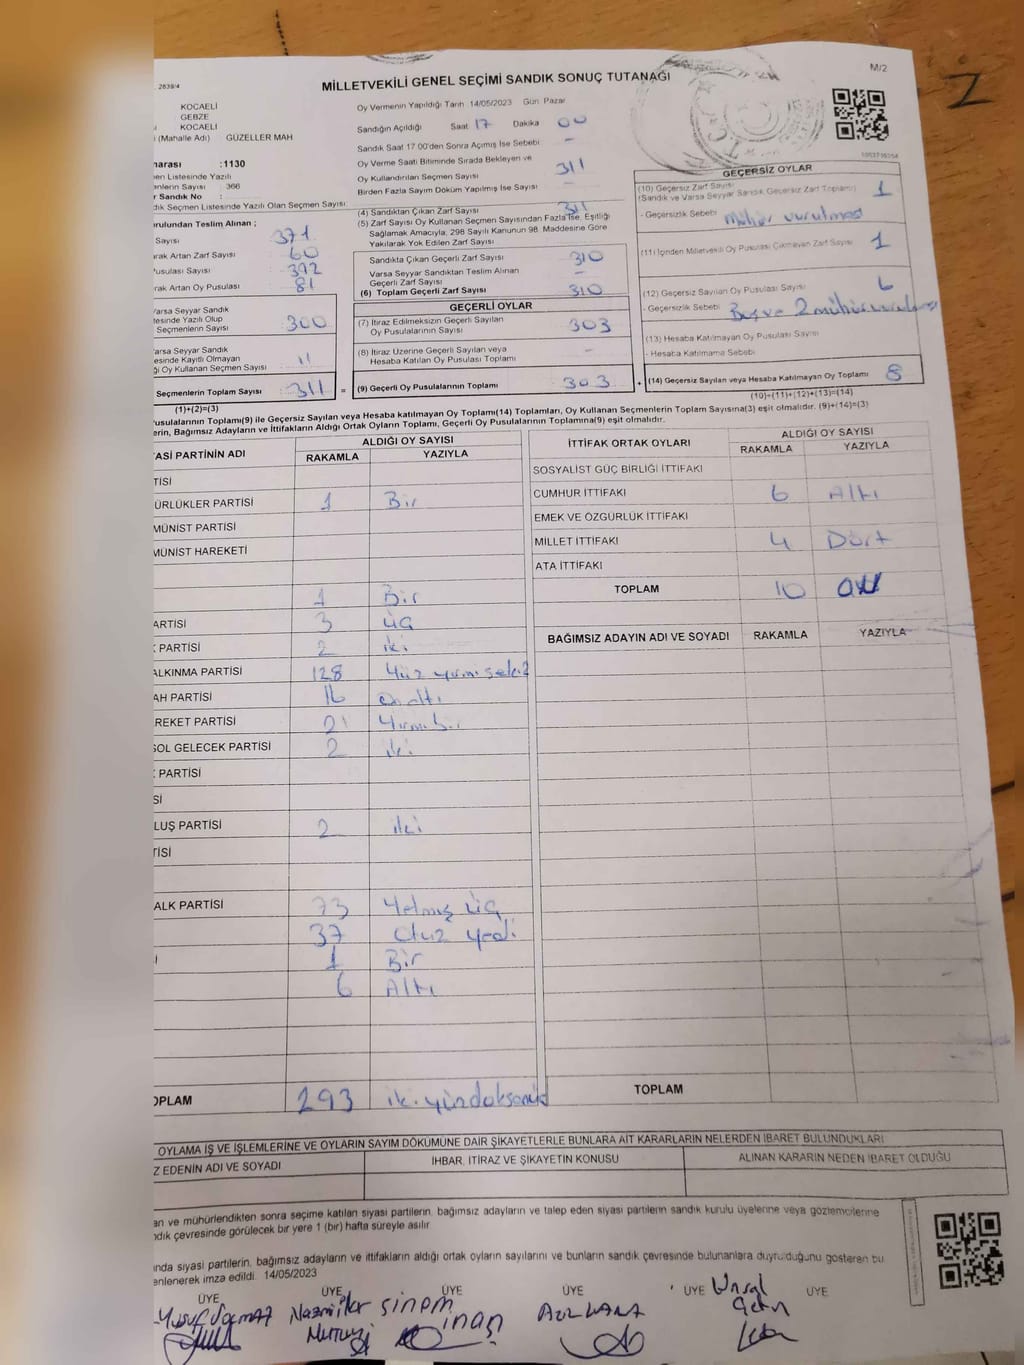 M/2
2839/4
MİLLETVEKİLİ GENEL SEÇİMİ SANDIK SONUÇ TUTANAĞI
KOCAELİ
GEBZE
KOCAELİ
(Mahalle Adı) GÜZELLER MAH
:1130
en Listesinde Yazılı
Sayısı : 366
r Sandık No :
dık Seçmen Listesinde Yazılı Olan Seçmen Sayısı:
rulundan Teslim Alınan ;
Sayısı 371
rak Artan Zarf Sayısı 60
usulası Sayısı 392
rak Artan Oy Pusulası 81
arsa Seyyar Sandık
tesinde Yazılı Olup
Seçmenlerin Sayısı 300
arsa Seyyar Sandık
esinde Kayıtlı Olmayan
Oy Kullanan Seçmen Sayısı 11
Seçmenlerin Toplam Sayısı 311 =
(1)+(2)=(3)
Oy Vermenin Yapıldığı Tarih 14/05/2023 Gün Pazar
Sandığın Açıldığı Saat 17 Dakika 00
Sandık Saat 17.00'den Sonra Açımış İse Sebebi -
Oy Verme Saati Bitiminde Sırada Bekleyen ve
Oy Kullandırılan Seçmen Sayısı 311
Birden Fazla Sayım Döküm Yapılmış İse Sayısı -
(4) Sandıktan Çıkan Zarf Sayısı 311
(5) Zarf Sayısı Oy Kullanan Seçmen Sayısından Fazla İse, Eşitliği
Sağlamak Amacıyla; 298 Sayılı Kanunun 98. Maddesine Göre
Yakılarak Yok Edilen Zarf Sayısı
Sandıkta Çıkan Geçerli Zarf Sayısı 310
Varsa Seyyar Sandıktan Teslim Alınan
Geçerli Zarf Sayısı
(6) Toplam Geçerli Zarf Sayısı 310
GEÇERLİ OYLAR
(7) İtiraz Edilmeksizin Geçerli Sayılan
Oy Pusulalarının Sayısı 303
(8) İtiraz Üzerine Geçerli Sayılan veya
Hesaba Katılan Oy Pusulası Toplamı -
(9) Geçerli Oy Pusulalarının Toplamı 303 +
GEÇERSİZ OYLAR
(10) Geçersiz Zarf Sayısı 1
(Sandık ve Varsa Seyyar Sandık Geçersiz Zarf Toplamı)
- Geçersizlik Sebebi Mühür vurulması
(11) İçinden Milletvekili Oy Pusulası Çıkmayan Zarf Sayısı 1
(12) Geçersiz Sayılan Oy Pusulası Sayısı 6
- Geçersizlik Sebebi Boş ve 2 mühür vurulması
(13) Hesaba Katılmayan Oy Pusulası Sayısı
- Hesaba Katılmama Sebebi
(14) Geçersiz Sayılan veya Hesaba Katılmayan Oy Toplamı 8
(10)+(11)+(12)+(13)=(14)
usulalarının Toplamı(9) ile Geçersiz Sayılan veya Hesaba katılmayan Oy Toplamı(14) Toplamları, Oy Kullanan Seçmenlerin Toplam Sayısına(3) eşit olmalıdır. (9)+(14)=(3)
erin, Bağımsız Adayların ve İttifakların Aldığı Ortak Oyların Toplamı, Geçerli Oy Pusulalarının Toplamına(9) eşit olmalıdır.
ASİ PARTİNİN ADI ALDIĞI OY SAYISI
RAKAMLA YAZIYLA
TİSİ
ÜRLÜKLER PARTİSİ 1 Bir
MÜNİST PARTİSİ
MÜNİST HAREKETİ
1 Bir
ARTİSİ 3 üç
PARTİSİ 2 iki
ALKINMA PARTİSİ 128 Yüz yirmi sekiz
AH PARTİSİ 16 On altı
REKET PARTİSİ 21 Yirmi bir
SOL GELECEK PARTİSİ 2 iki
PARTİSİ
Sİ
LUŞ PARTİSİ 2 iki
TİSİ
ALK PARTİSİ 73 Yetmiş üç
37 Otuz yedi
1 Bir
6 Altı
OPLAM 293 iki yüz doksan
İTTİFAK ORTAK OYLARI ALDIĞI OY SAYISI
RAKAMLA YAZIYLA
SOSYALİST GÜÇ BİRLİĞİ İTTİFAKI
CUMHUR İTTİFAKI 6 Altı
EMEK VE ÖZGÜRLÜK İTTİFAKI
MİLLET İTTİFAKI 4 Dört
ATA İTTİFAKI
TOPLAM 10 On
BAĞIMSIZ ADAYIN ADI VE SOYADI RAKAMLA YAZIYLA
TOPLAM
OYLAMA İŞ VE İŞLEMLERİNE VE OYLARIN SAYIM DÖKÜMÜNE DAİR ŞİKAYETLERLE BUNLARA AİT KARARLARIN NELERDEN İBARET BULUNDUKLARI
Z EDENİN ADI VE SOYADI İHBAR, İTİRAZ VE ŞİKAYETİN KONUSU ALINAN KARARIN NEDEN İBARET OLDUĞU
an ve mühürlendikten sonra seçime katılan siyasi partilerin, bağımsız adayların ve talep eden siyasi partilerin sandık kurulu üyelerine veya gözlemcilerine
ndık çevresinde görülecek bir yere 1 (bir) hafta süreyle asılır.
ında siyasi partilerin, bağımsız adayların ve ittifakların aldığı ortak oyların sayılarını ve bunların sandık çevresinde bulunanlara duyrulduğunu gösteren bu
enlenerek imza edildi. 14/05/2023
ÜYE ÜYE ÜYE ÜYE ÜYE ÜYE
Yusuf sinem inan